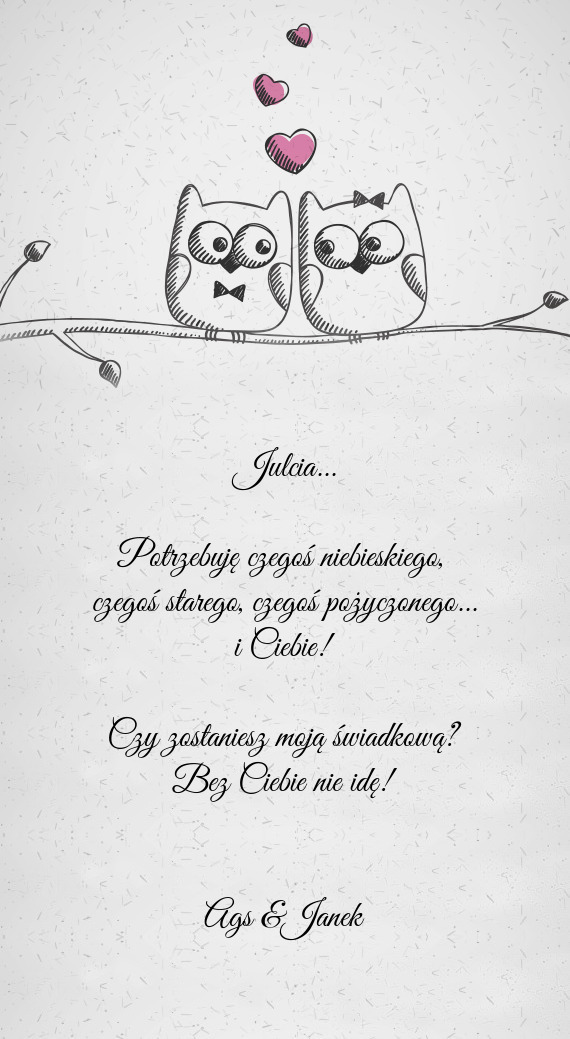 Julcia...
Potrzebuję czegoś niebieskiego,
czegoś starego, czegoś pożyczonego...
i Ciebie!
Czy zostaniesz moją świadkową?
Bez Ciebie nie idę!
Ags & Janek